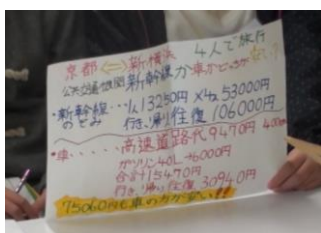 京都⇔新横浜 4人で旅行
公共交通機関 新幹線か車かどっちが安い?
・新幹線…1人13250円×4=53000円
のぞみ 行き、帰り往復 106000円
・車・・・・・高速道路代9470円 400km
ガソリン40L→6000円
合計15470円
行き、帰り往復 30940円
75060円も車の方が安い!!